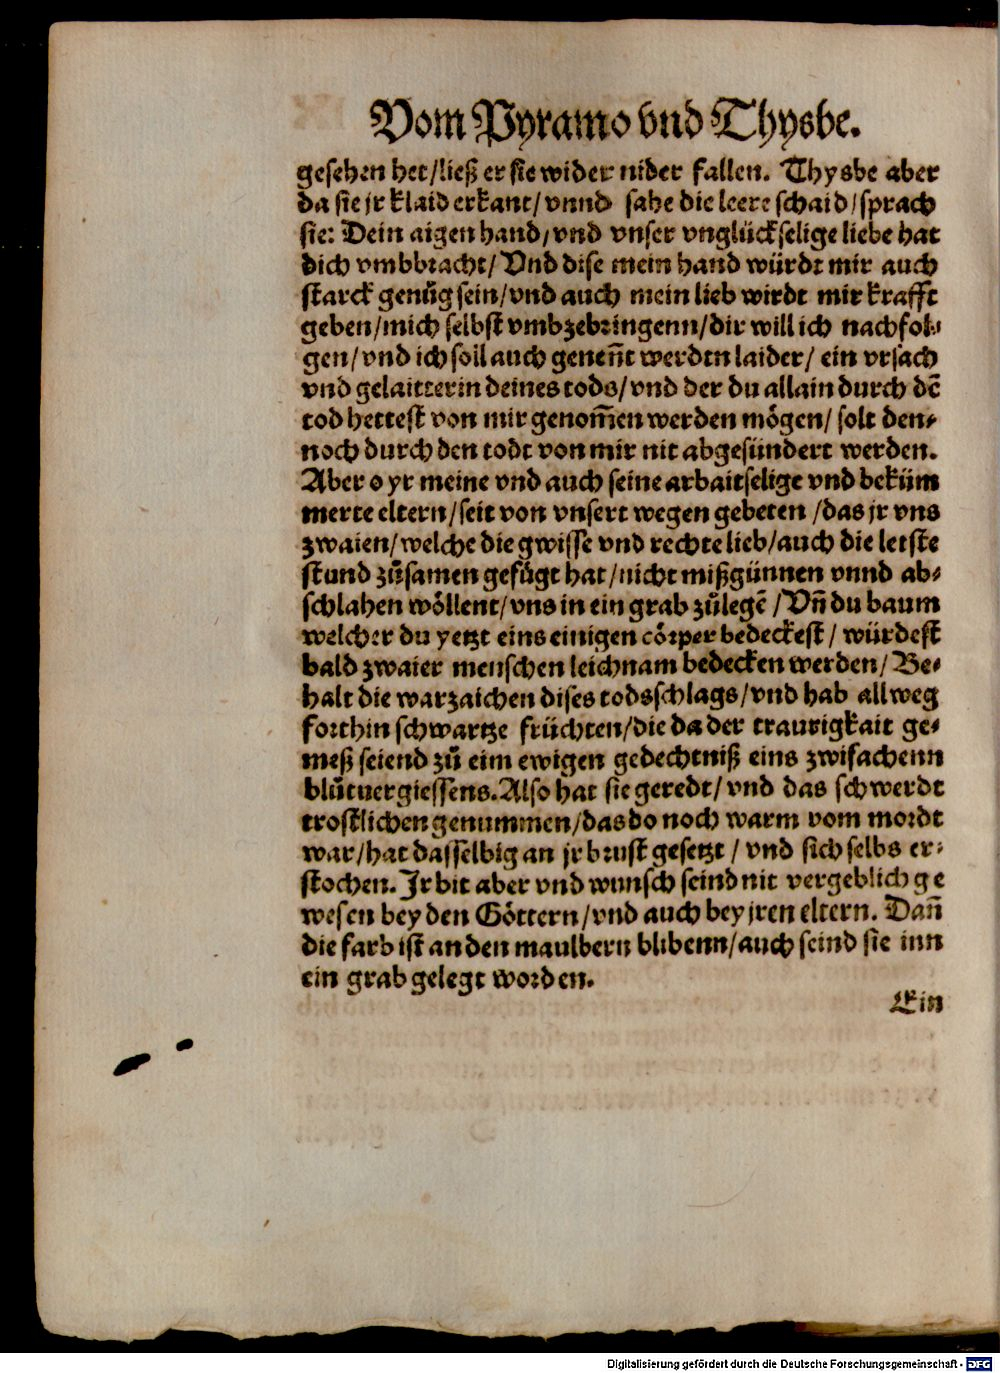 Vom Pyramo vnd Thysbe.
gesehen het/ließ er sie wider nider fallen. Thysbe aber
da sie jr klaid erkant/vnnd sahe die leere schaid/sprach
sie: Dein aigen hand/vnd vnser vnglückselige liebe hat
dich vmbbracht/Vnd dise mein hand würdt mir auch
starck genůg sein/vnd auch mein lieb wirdt mir krafft
geben/mich selbst vmbzebringenn/dir will ich nachfol-
gen/vnd ich soll auch geneñt werden laider/ein vrsach
vnd gelaitterin deines tods/vnd der du allain durch dē
tod hettest von mir genom̄en werden mögen/solt den-
noch durch den todt von mir nit abgesündert werden.
Aber o yr meine vnd auch seine arbaitselige vnd beküm
merte eltern/seit von vnsert wegen gebeten/das jr vns
zwaien/welche die gwisse vnd rechte lieb/auch die letste
stund zůsamen gefügt hat/nicht mißgünnen vnnd ab-
schlahen wöllent/vns in ein grab zůlegē/Vñ du baum
welcher du yetzt eins einigen cörper bedeckest/würdest
bald zwaier menschen leichnam bedecken werden/Be-
halt die warzaichen dises todsschlags/vnd hab allweg
forthin schwartze früchten/die da der traurigkait ge-
meß seiend zů eim ewigen gedechtniß eins zwifachenn
blůtuergiessens. Also hat sie geredt/vnd das schwerdt
trostlichen genummen/das do noch warm vom mordt
war/hat dasselbig an jr brust gesetzt/vnd sich selbs er-
stochen. Jr bit aber vnd wunsch seind nit vergeblich ge
wesen bey den Göttern/vnd auch bey jren eltern. Dañ
die farb ist an den maulbern blibenn/auch seind sie inn
ein grab gelegt worden.
Ein
Digitalisierung gefördert durch die Deutsche Forschungsgemeinschaft - DFG